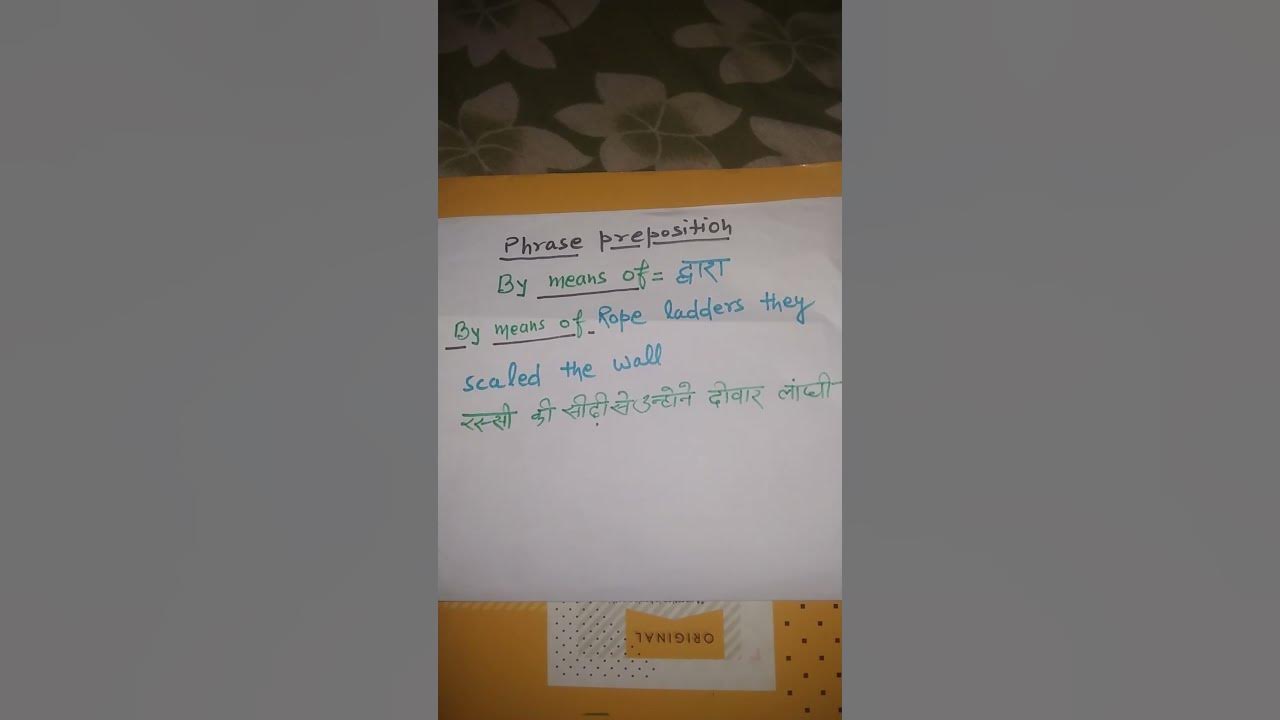 Phrase preposition
By means of = द्वारा
By means of Rope ladders they
scaled the wall
रस्सी की सीढ़ी से उन्होने दीवार लांघी
ORIGINAL